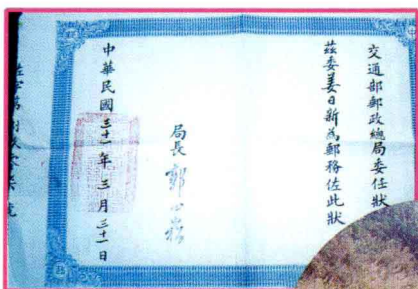 交通部郵政總局委任狀
茲委姜日新為郵務佐此狀
局長
中華民國三十一年三月三十一日